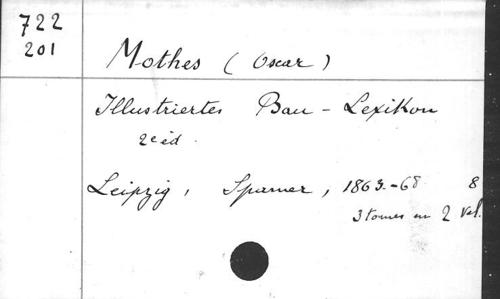 722
201
Mothes (Oscar)
Illustriertes Bau-Lexikon
2e éd.
Leipzig, Spamer, 1863-68 8
3 tomes en 2 vol.